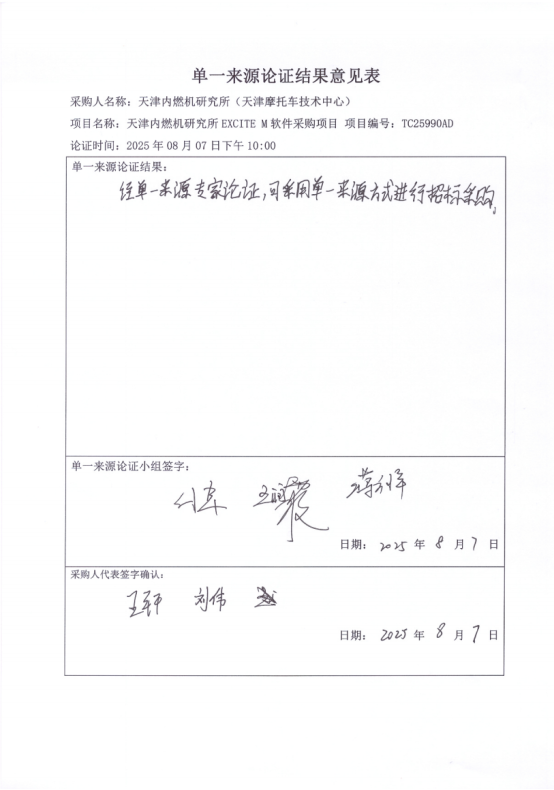 单一来源论证结果意见表
采购人名称：天津内燃机研究所（天津摩托车技术中心）
项目名称：天津内燃机研究所 EXCITE M 软件采购项目 项目编号：TC25990AD
论证时间：2025 年 08 月 07 日下午 10:00
单一来源论证结果：
经单一来源专家论证，可采用单一来源方式进行招标采购。
单一来源论证小组签字：
日期：2025 年 8 月 7 日
采购人代表签字确认：
刘伟
日期：2025 年 8 月 7 日